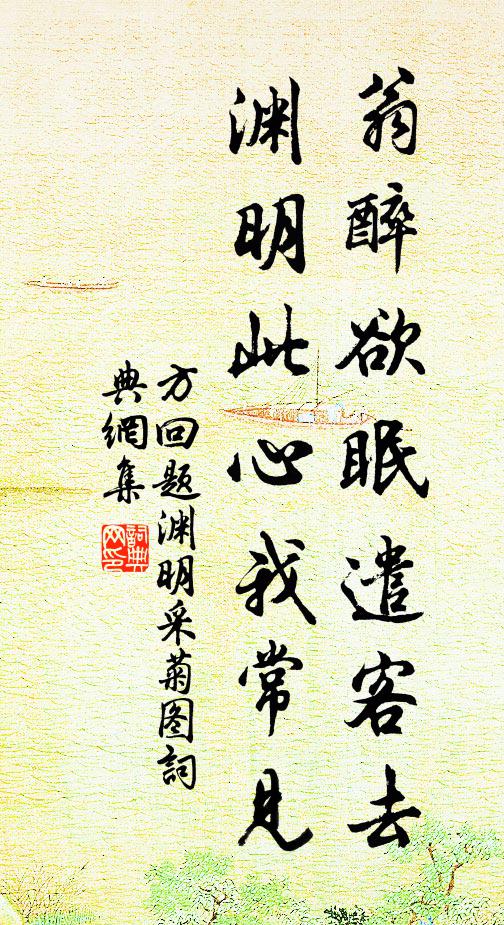 翁醉欲眠遣客去
渊明此心我常见
方回题渊明采菊图詞
典網集
詞典
网印